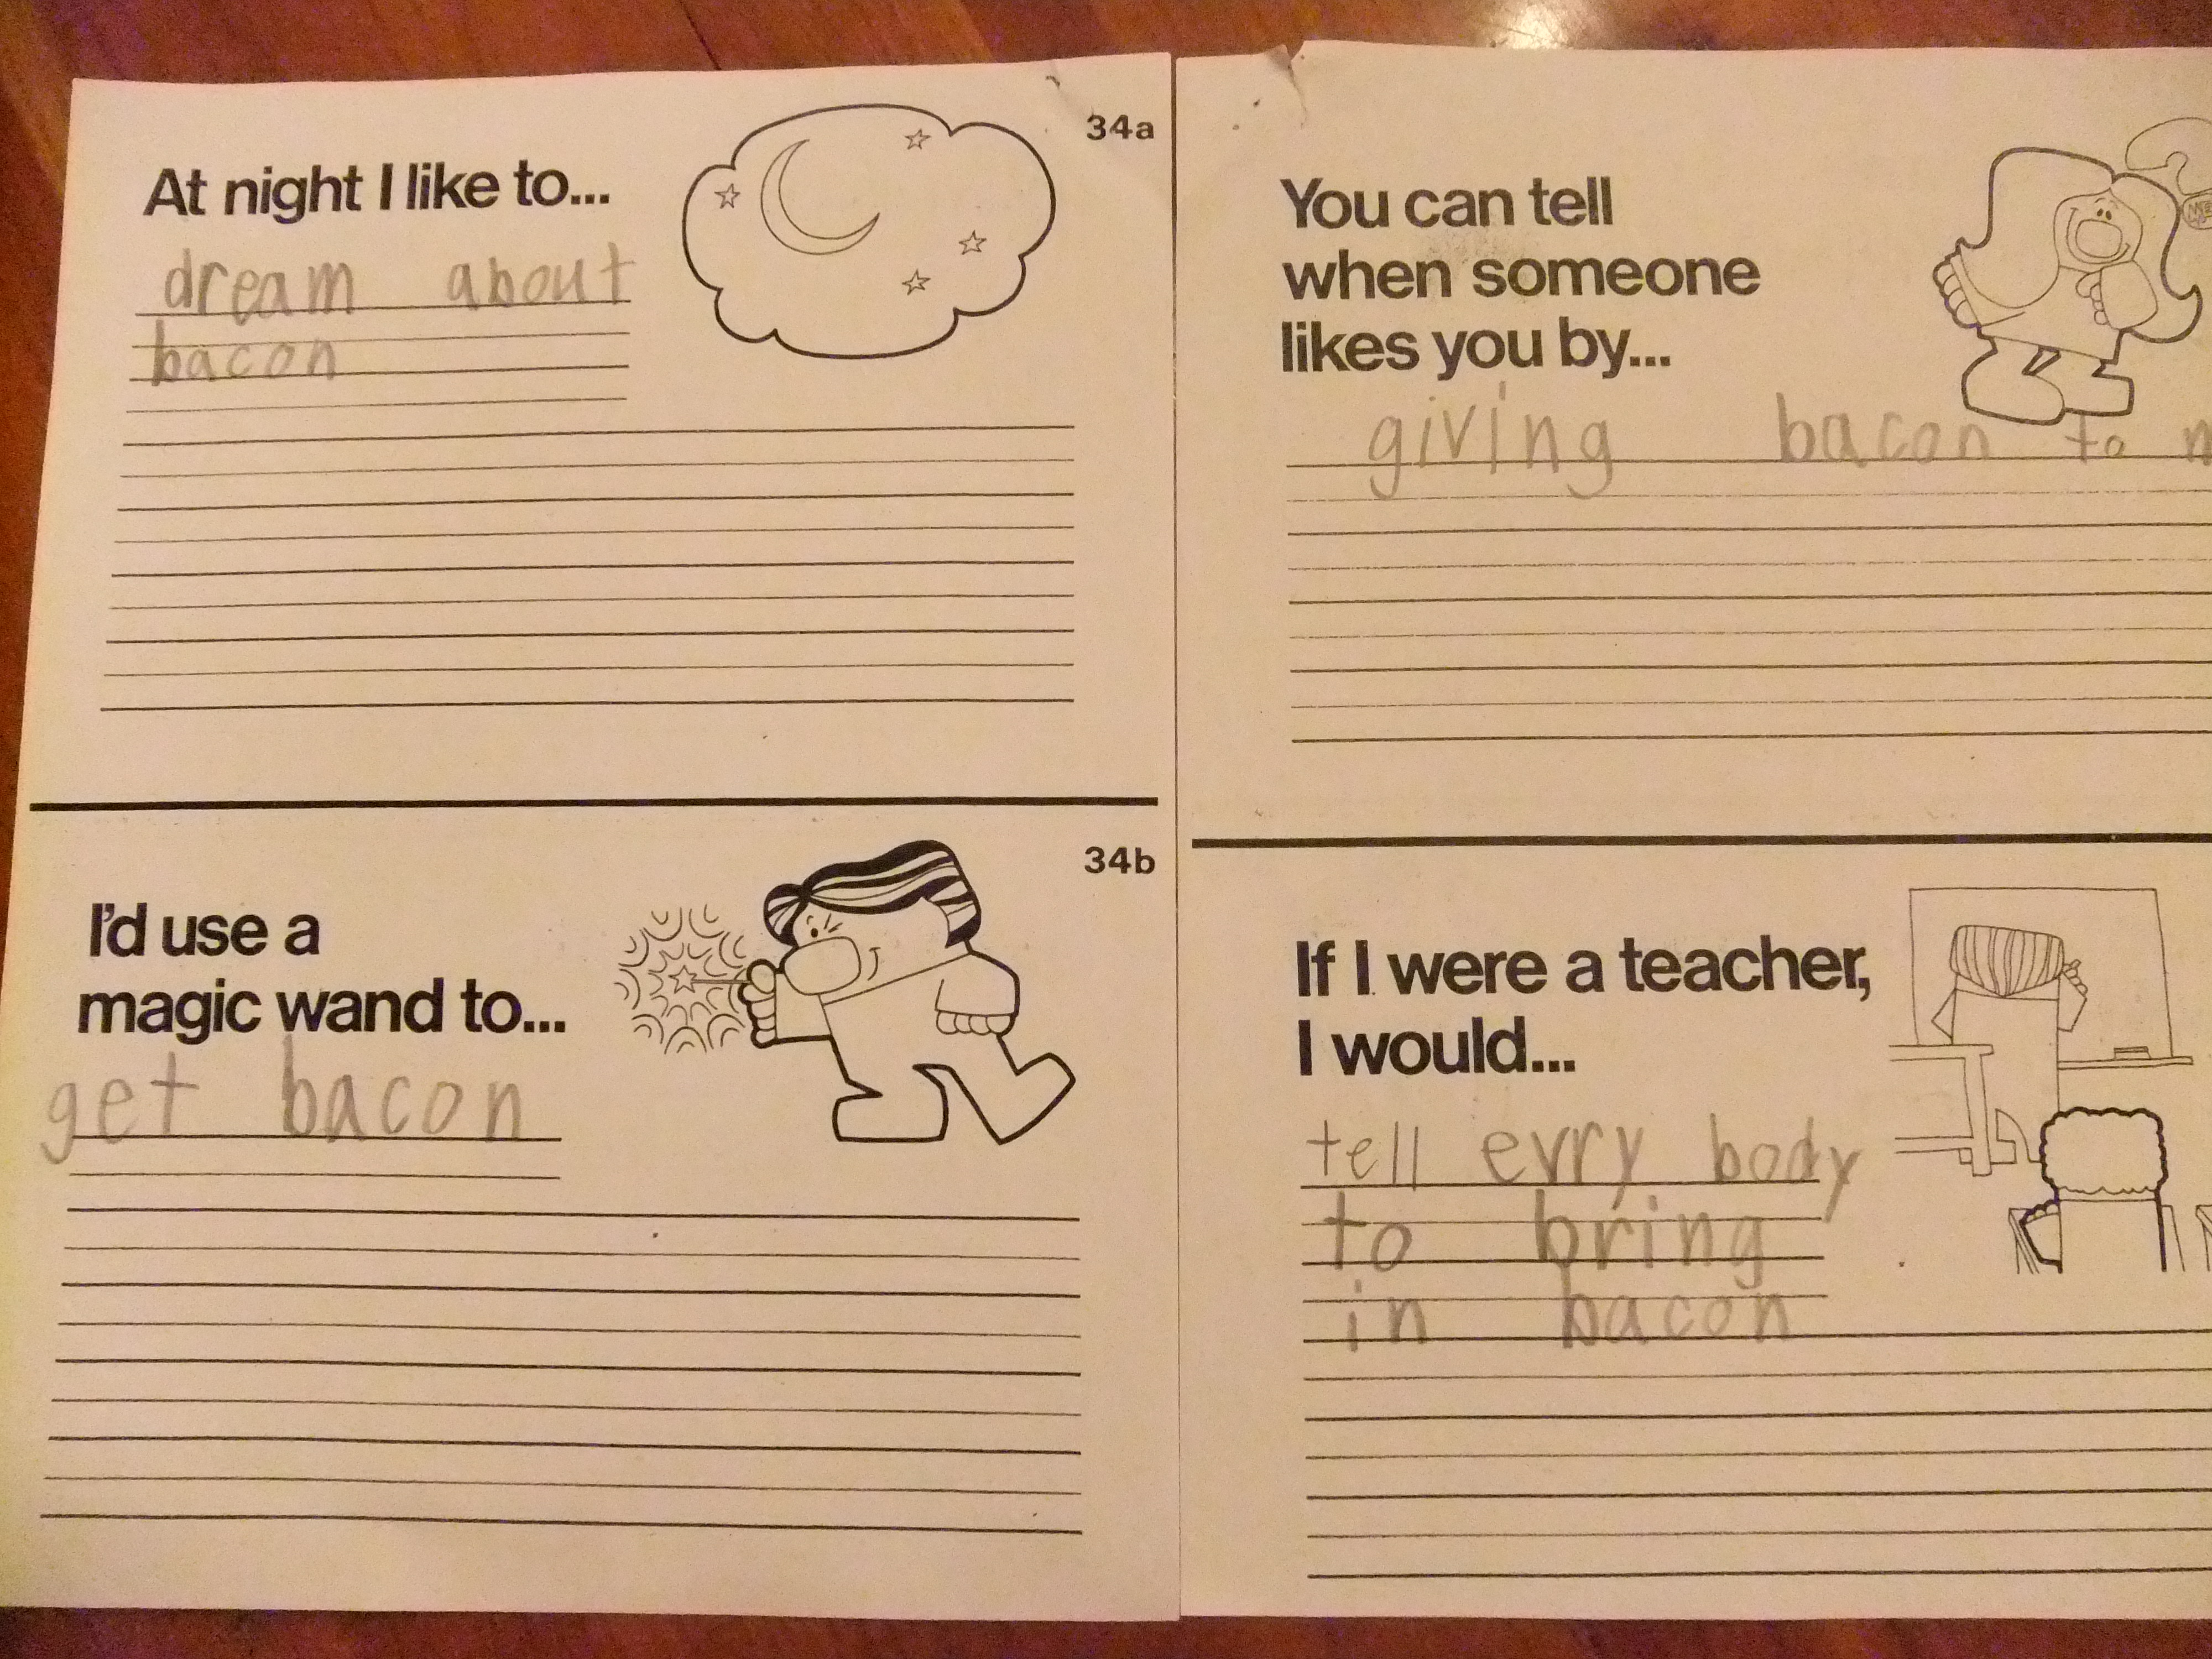 34a
At night I like to...
dream about
bacon
34b
I'd use a
magic wand to...
get bacon
You can tell
when someone
likes you by...
giving bacon to
If I were a teacher,
I would...
tell evry body
to bring
in bacon